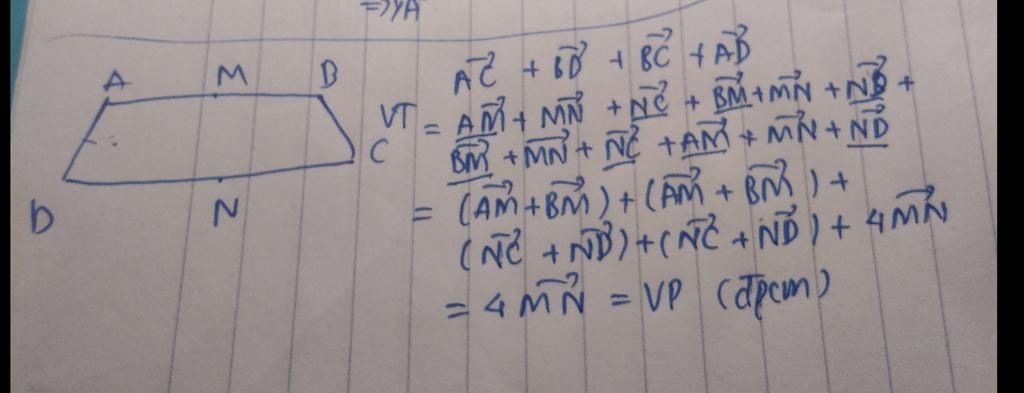 ⇒ YA
A M B
D N C
AC⃗ + BD⃗ + BC⃗ + AD⃗
VT = AM⃗ + MN⃗ + NC⃗ + BM⃗ + MN⃗ + ND⃗ +
BM⃗ + MN⃗ + NC⃗ + AM⃗ + MN⃗ + ND⃗
= (AM⃗ + BM⃗) + (AM⃗ + BM⃗) +
(NC⃗ + ND⃗) + (NC⃗ + ND⃗) + 4MN⃗
= 4MN⃗ = VP (đpcm)